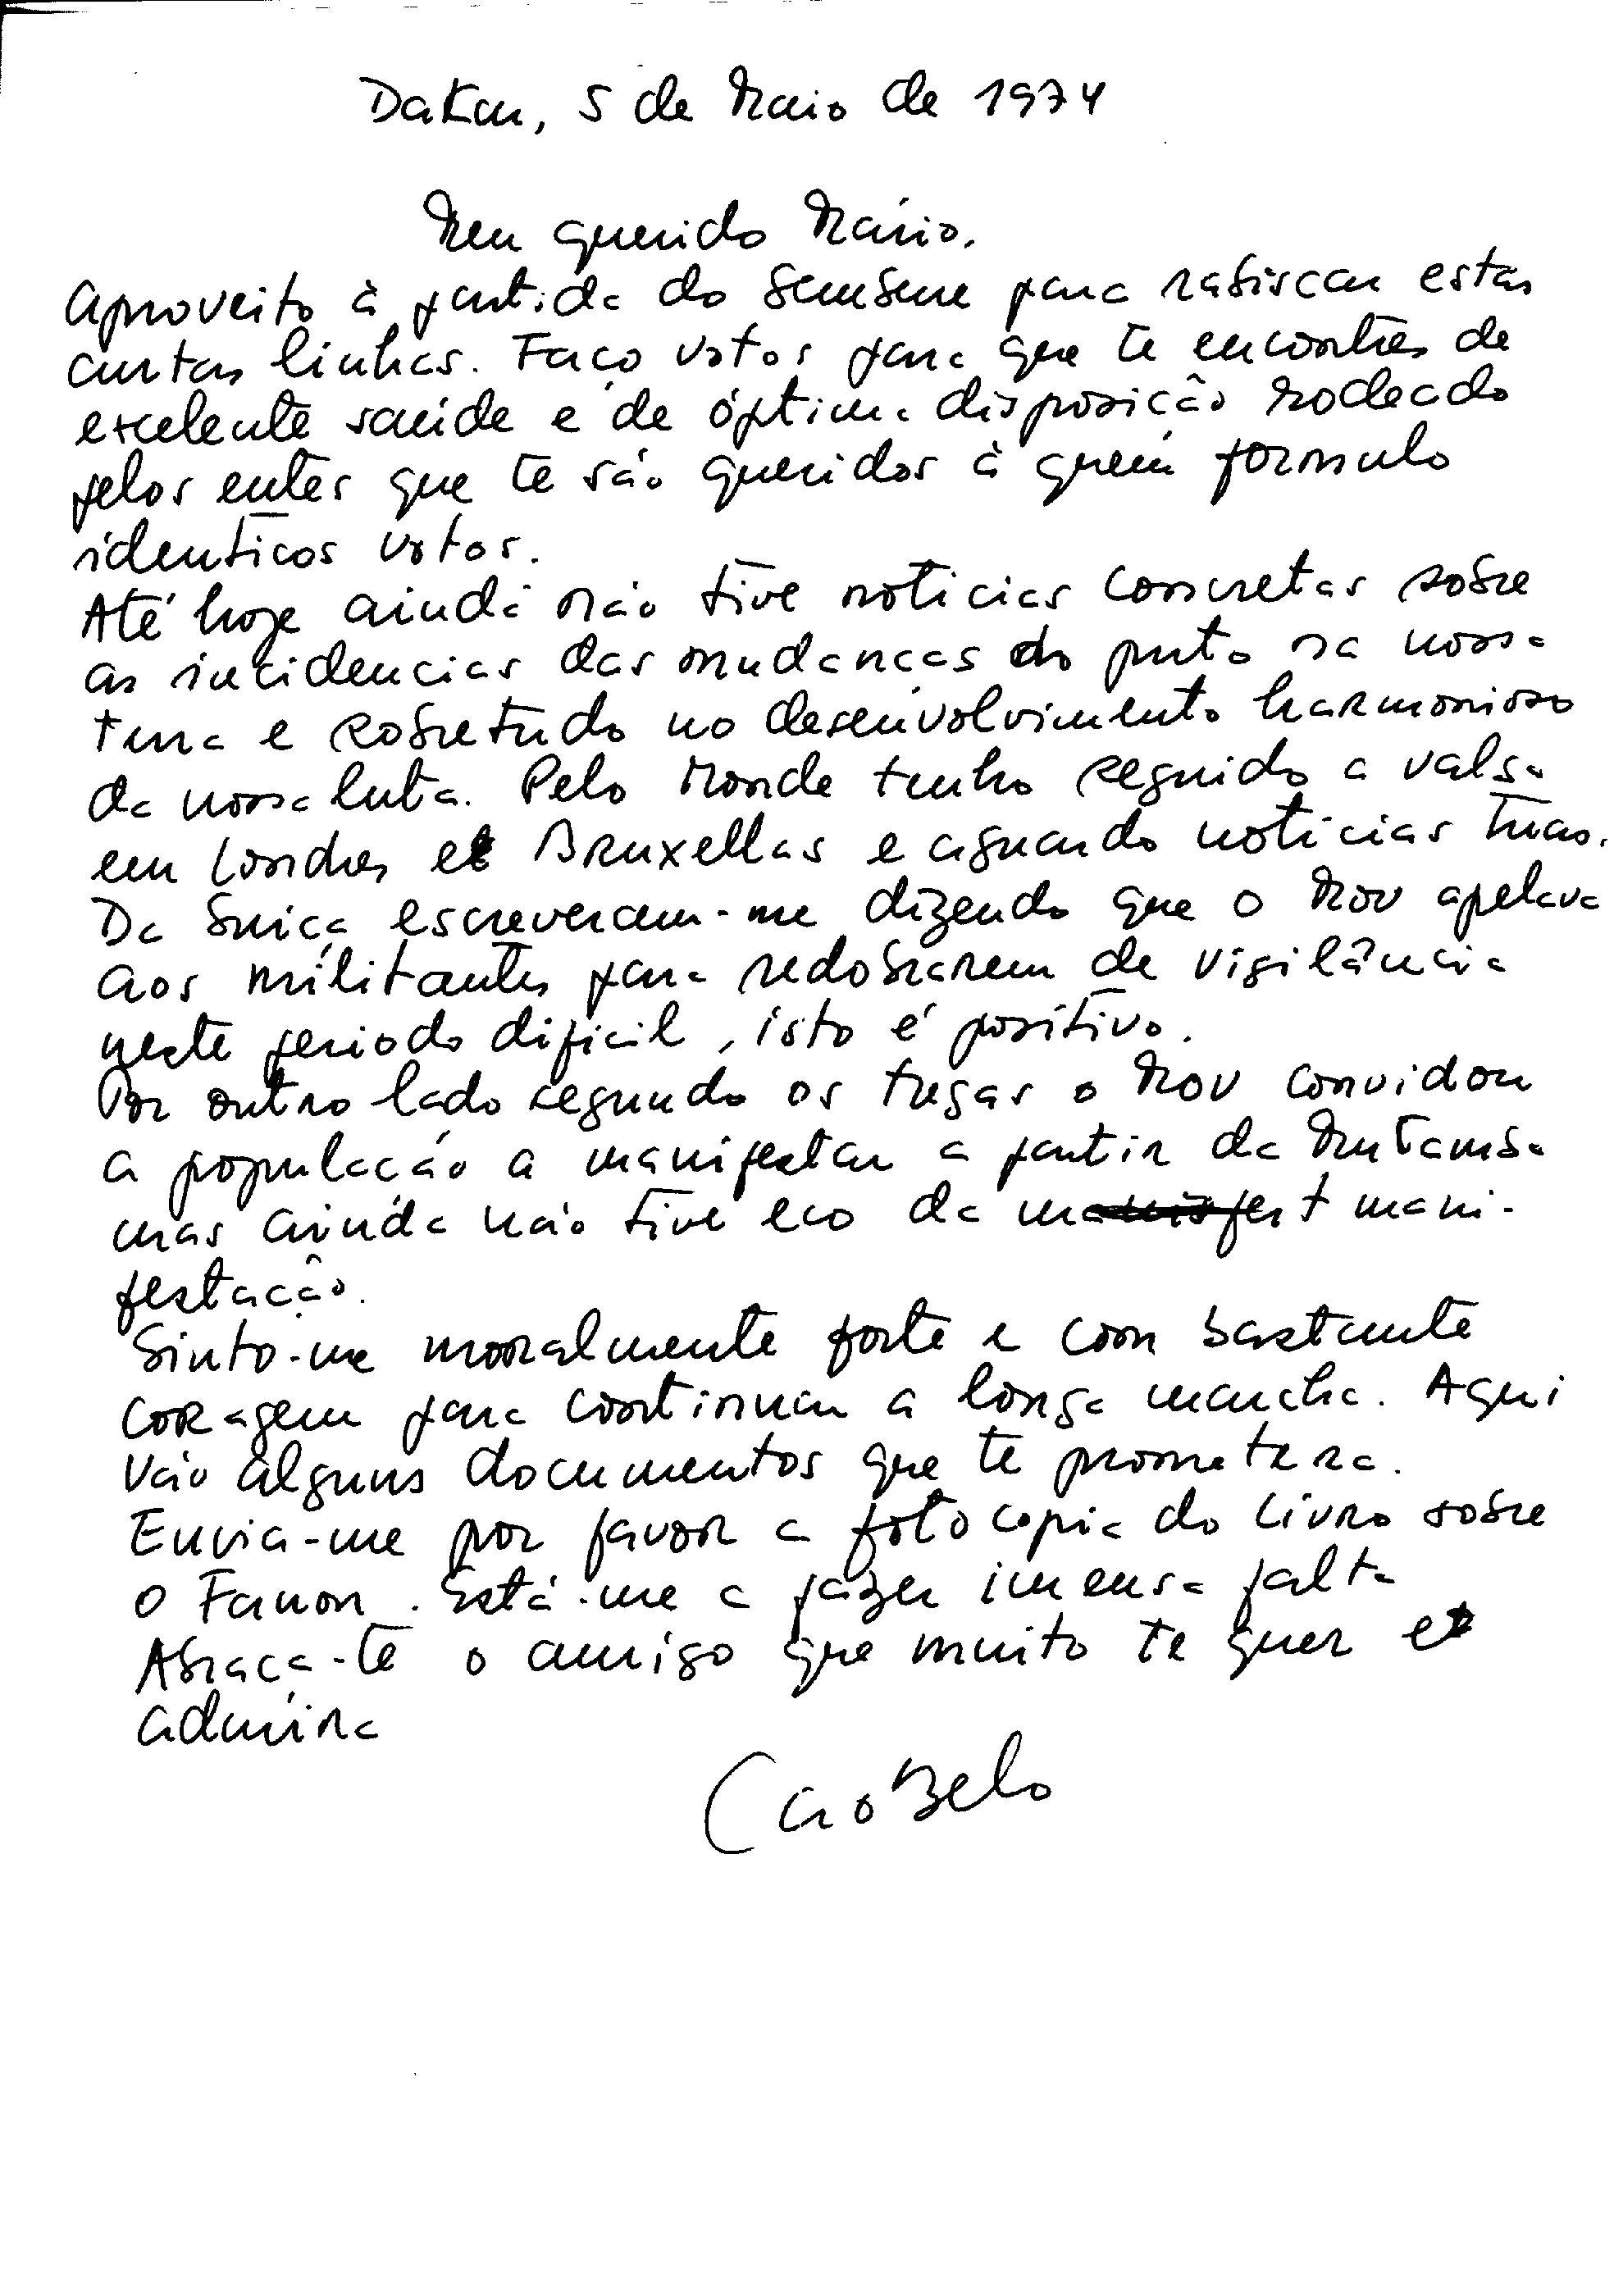 Dakar, 5 de Maio de 1974
Meu querido Mário,
Aproveito à partida do Sembene para rabiscar estas
curtas linhas. Faço votos para que te encontres de
excelente saúde e de óptima disposição rodeado
pelos entes que te são queridos à quem formulo
identicos votos.
Até hoje ainda não tive noticias concretas sobre
as incidencias das mudanças do puto na nossa
terra e sobretudo no desenvolvimento harmonioso
da nossa luta. Pelo Monde tenho seguido a valsa
em Londres et Bruxellas e aguardo noticias tuas.
Da Suiça escreveram-me dizendo que o Mov apelava
aos militantes para redobrarem de vigilância
neste periodo dificil, isto é positivo.
Por outro lado segundo os tugas o Mov convidou
a população a manifestar a partir da Mutamba
mas ainda não tive eco da manifest mani-
festação.
Sinto-me moralmente forte e com bastante
coragem para continuar a longa marcha. Aqui
vão alguns documentos que te prometera.
Envia-me por favor a fotocopia do livro sobre
o Fanon. Está-me a fazer imensa falta
Abraça-te o amigo que muito te quer et
admira